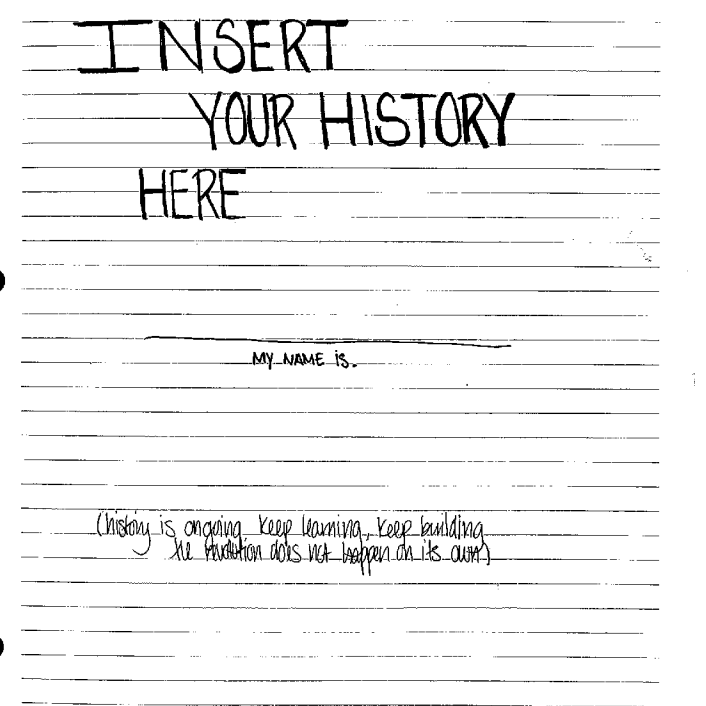 INSERT
YOUR HISTORY
HERE
MY NAME is.
(history is ongoing keep learning, keep building
the revolution does not happen on its own)